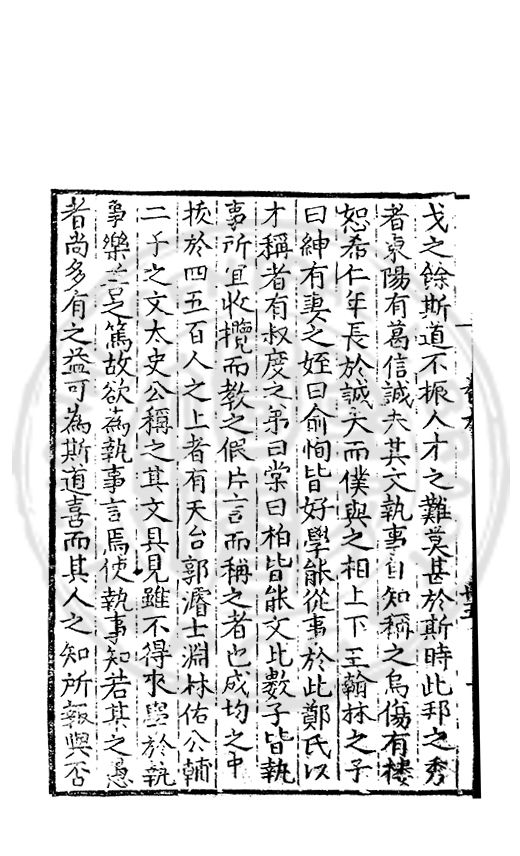 戈之餘斯道不振人才之難莫甚於斯時此邦之秀
者東陽有葛信誠夫其文執事自知稱之烏傷有楼
恕希仁年長於誠夫而僕與之相上下王翰林之子
曰紳有妻之姪曰俞恂皆好學能從事於此鄭氏以
才稱者有叔度之弟曰棠曰柏皆能文比數子皆執
事所宜收攬而教之假片言而稱之者也成均之中
拔於四五百人之上者有天台郭濬士淵林佑公輔
二子之文太史公稱之其文具見雖不得求學於執
事樂善之篤故欲為執事言焉使執事知若某之愚
者尚多有之益可為斯道喜而其人之知所報與否